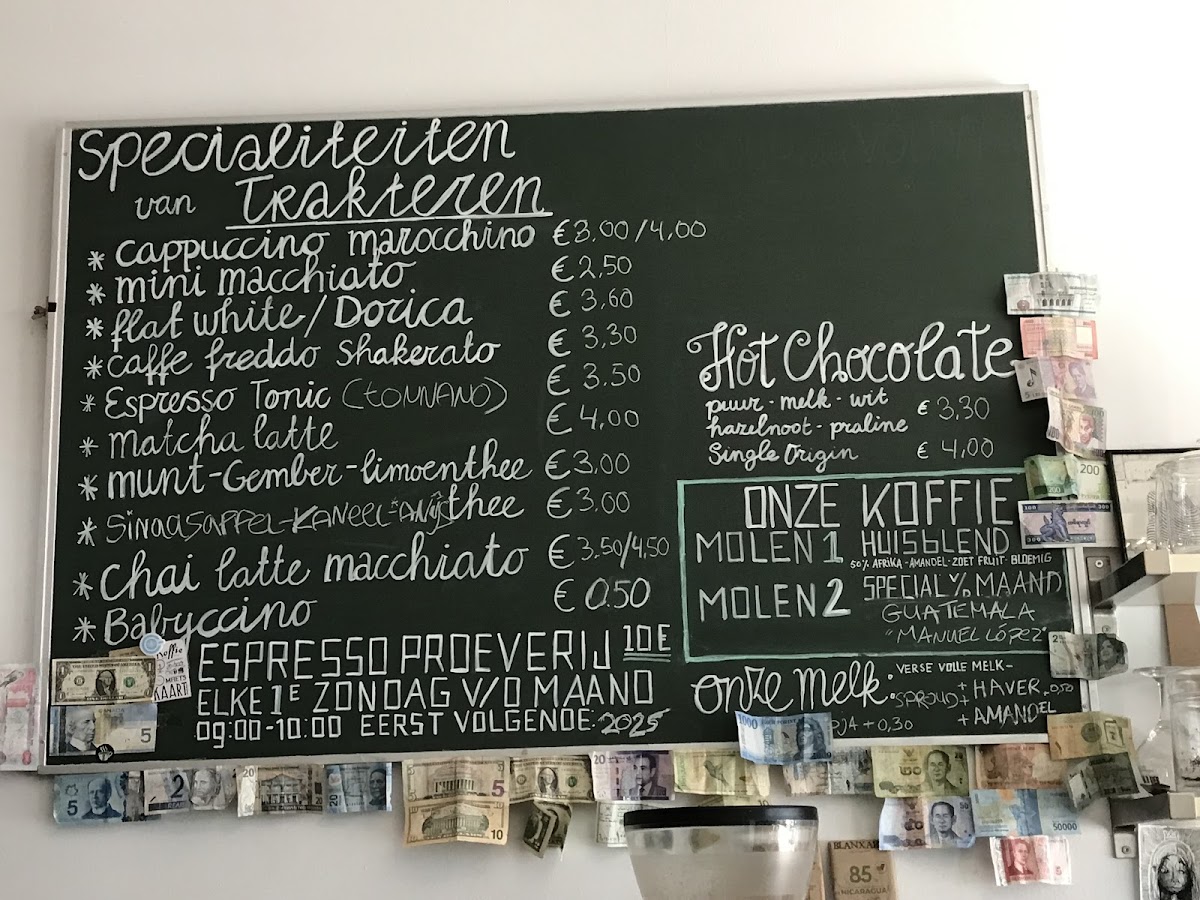 Specialiteiten
van Trakteren
* cappuccino marocchino €3,00/4,00
* mini macchiato €2,50
* flat white/Dorica €3,60
* caffe freddo shakerato €3,30
* Espresso Tonic (tonnano) €3,50
* matcha latte €4,00
* munt-Gember-limoenthee €3,00
* Sinaasappel-Kaneel-Anijsthee €3,00
* Chai latte macchiato €3,50/4,50
* Babyccino €0,50
ESPRESSO PROEVERIJ 10E
ELKE 1E ZONDAG V/D MAAND
09:00-10:00 EERST VOLGENDE: 2025
Hot Chocolate
puur - melk - wit € 3,30
hazelnoot - praline
Single Origin € 4,00
ONZE KOFFIE
MOLEN 1 HUISBLEND
50% AFRIKA - AMANDEL - ZOET FRUIT - BLOEMIG
MOLEN 2 SPECIAL V/D MAAND
GUATEMALA
"MANUEL LÓPEZ"
onze melk: VERSE VOLLE MELK -
+ HAVER 0,50
+ 0,30 + AMANDEL
KAART
5
5
2
20
20
5
10
1000
20
50
50000
200
200
100
BLANXART
85
NICARAGUA